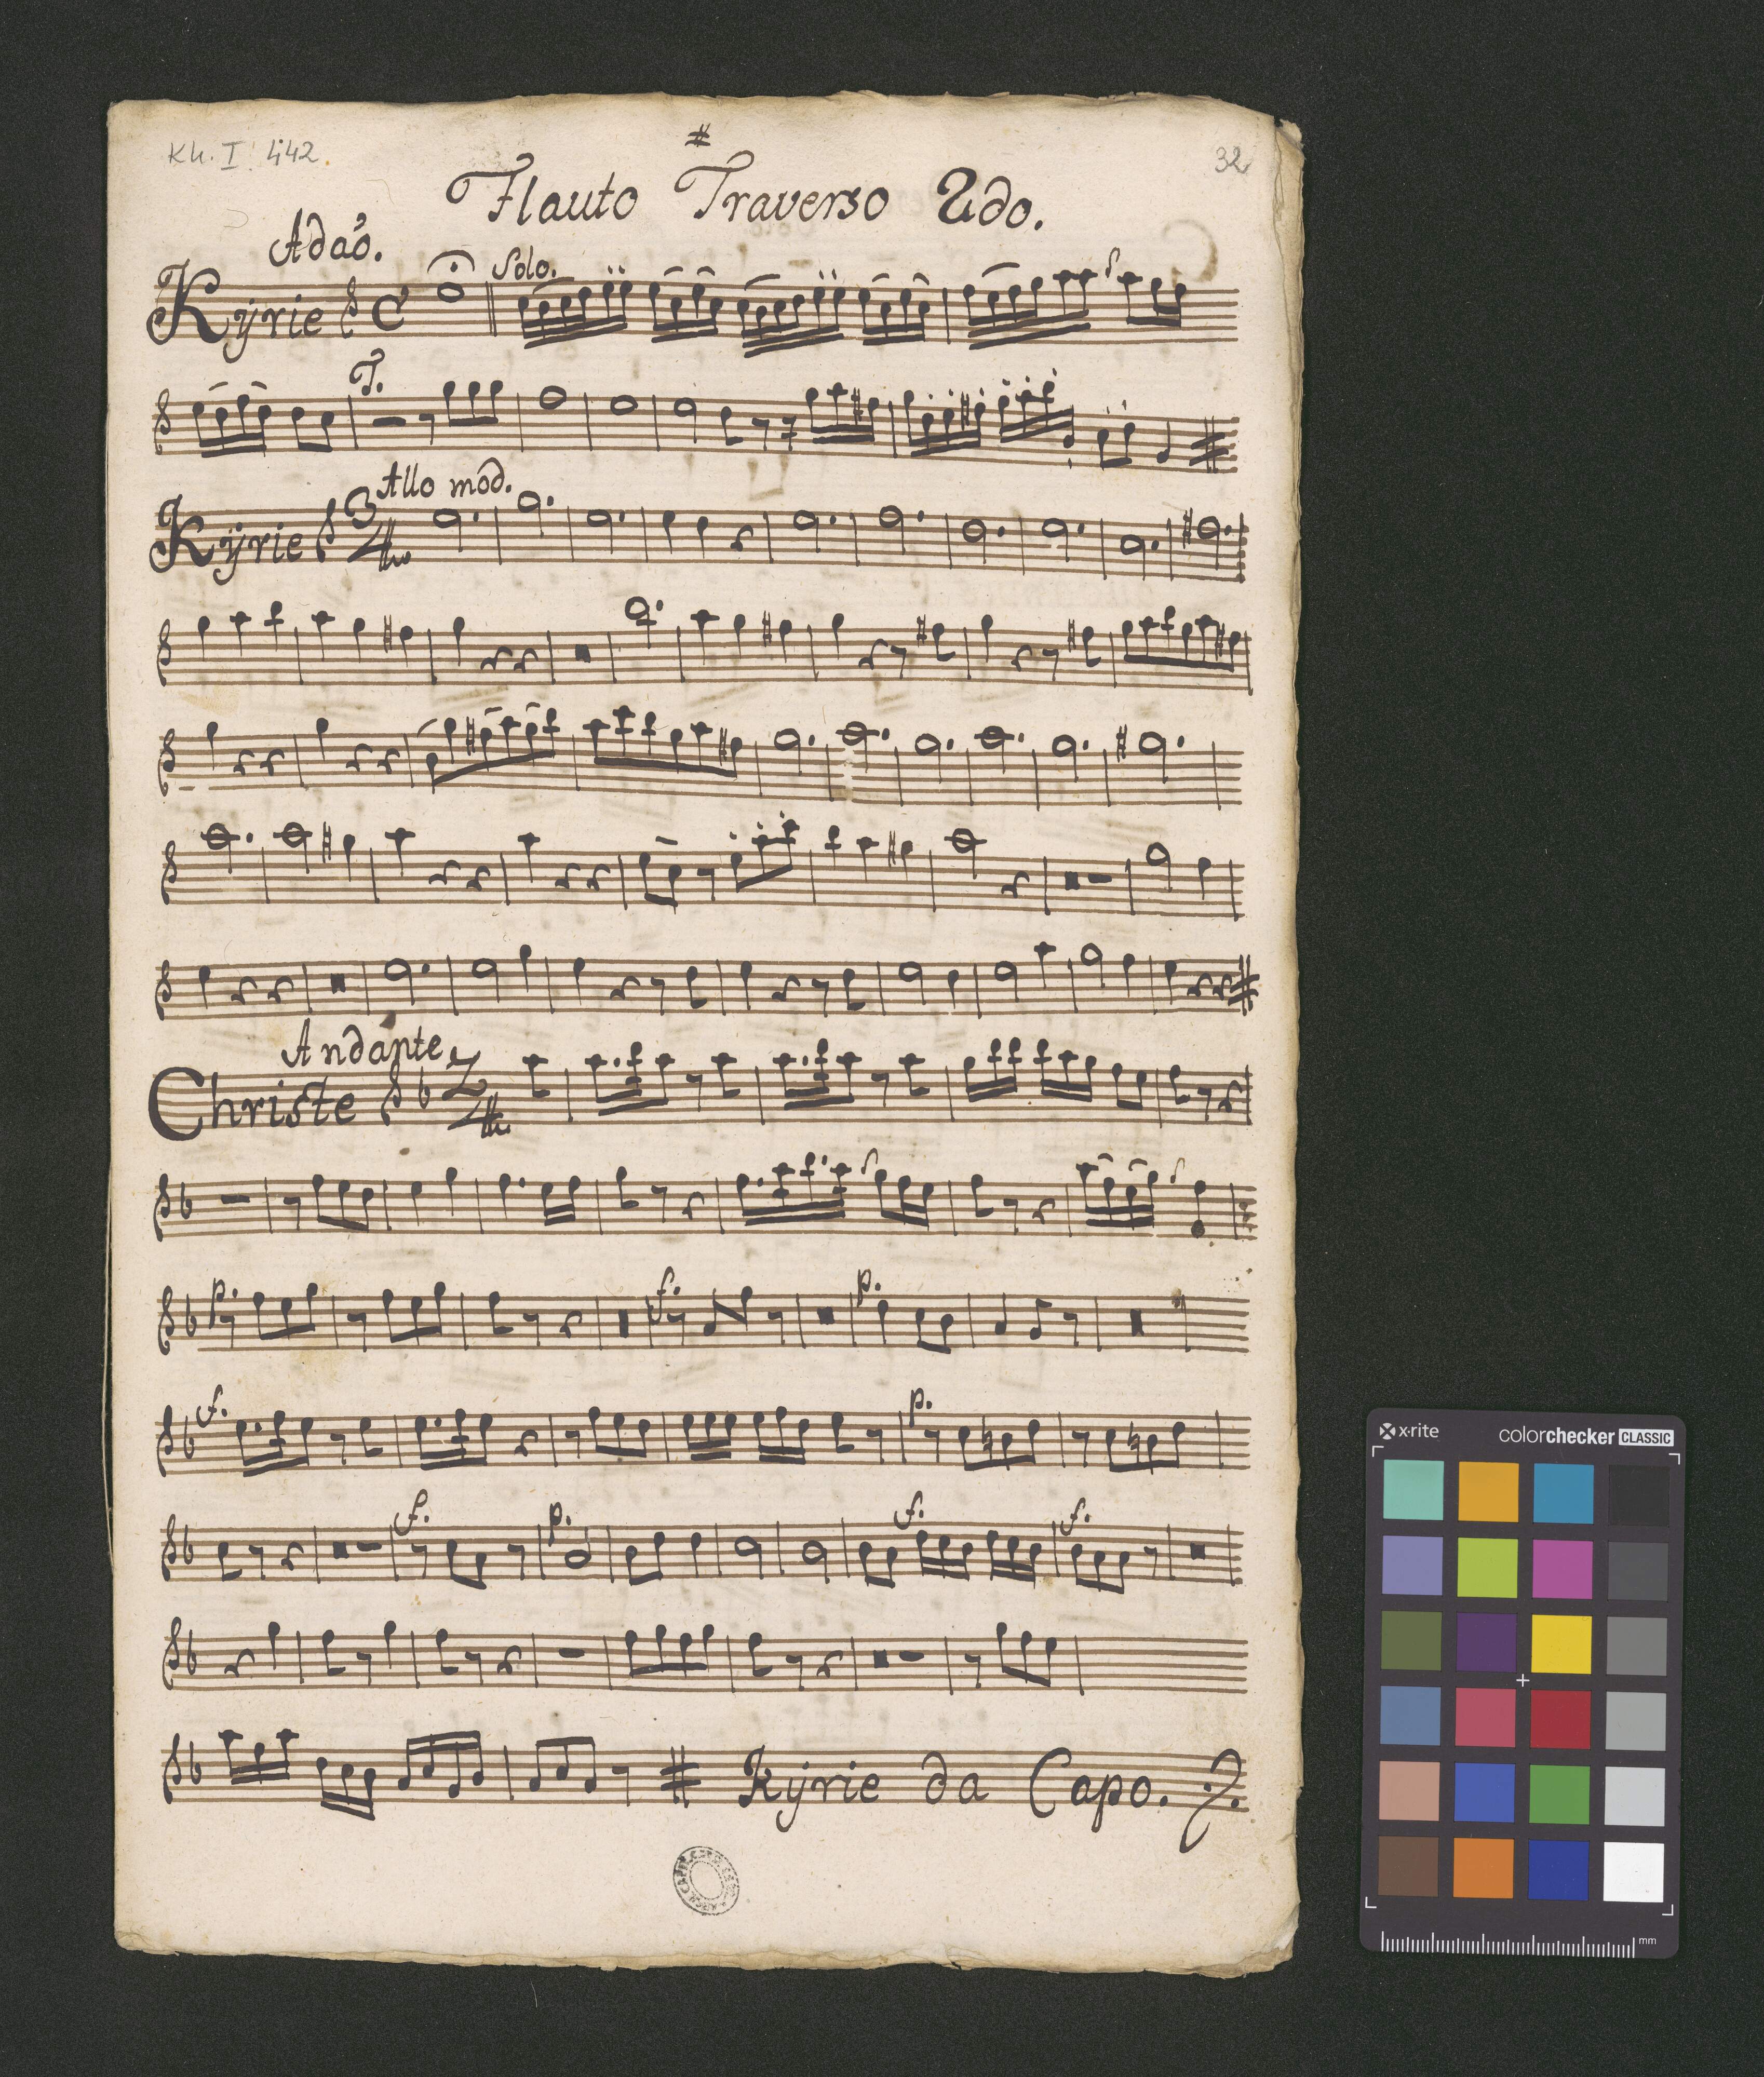 Kh. I 442
32
Flauto Traverso 2do.
Adaº.
Solo.
Kÿrie
T.
Allo mod.
Kÿrie 3/4
Andante
Christe 2/4
p. f. p.
f. p.
f. p. f. f.
Kÿrie da Capo.
x·rite colorchecker CLASSIC
mm